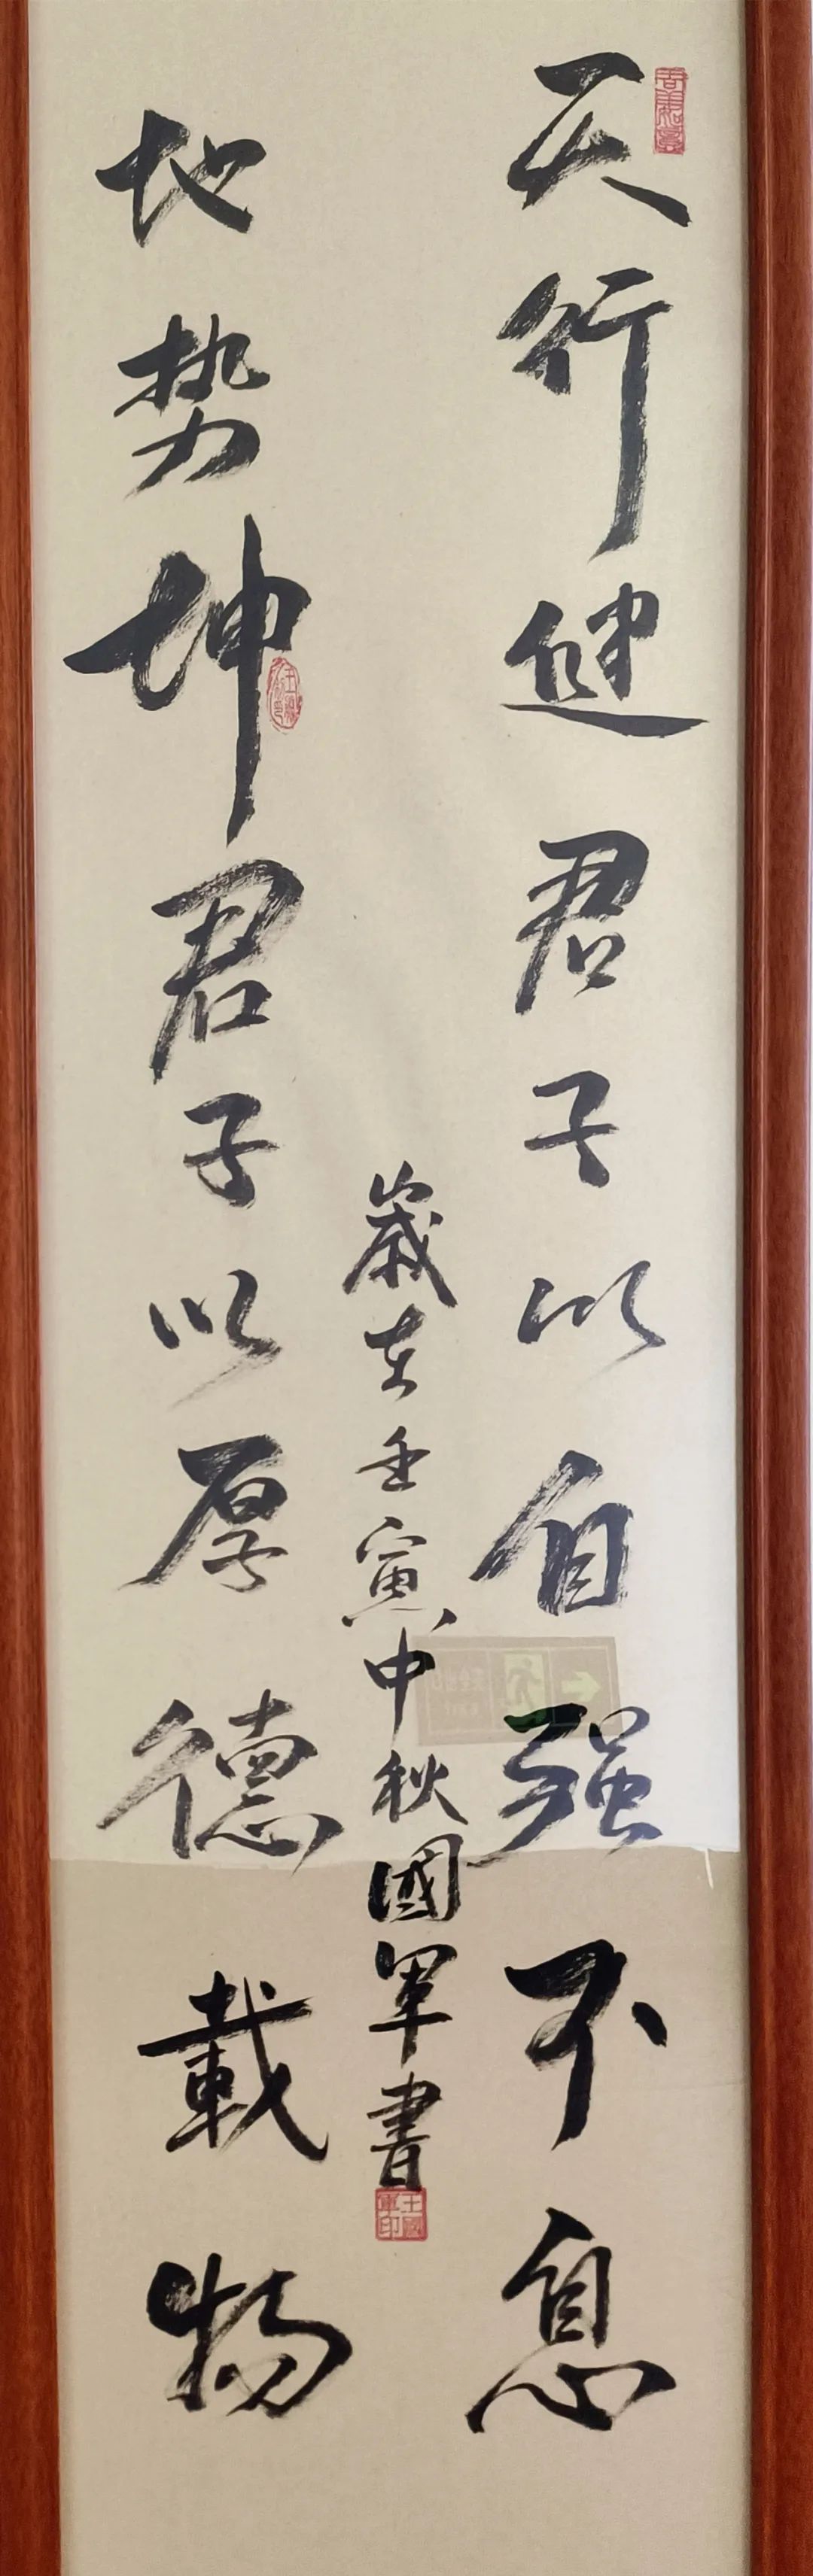 天行健君子以自强不息
地势坤君子以厚德載物
歲在壬寅中秋國軍書
王國軍印